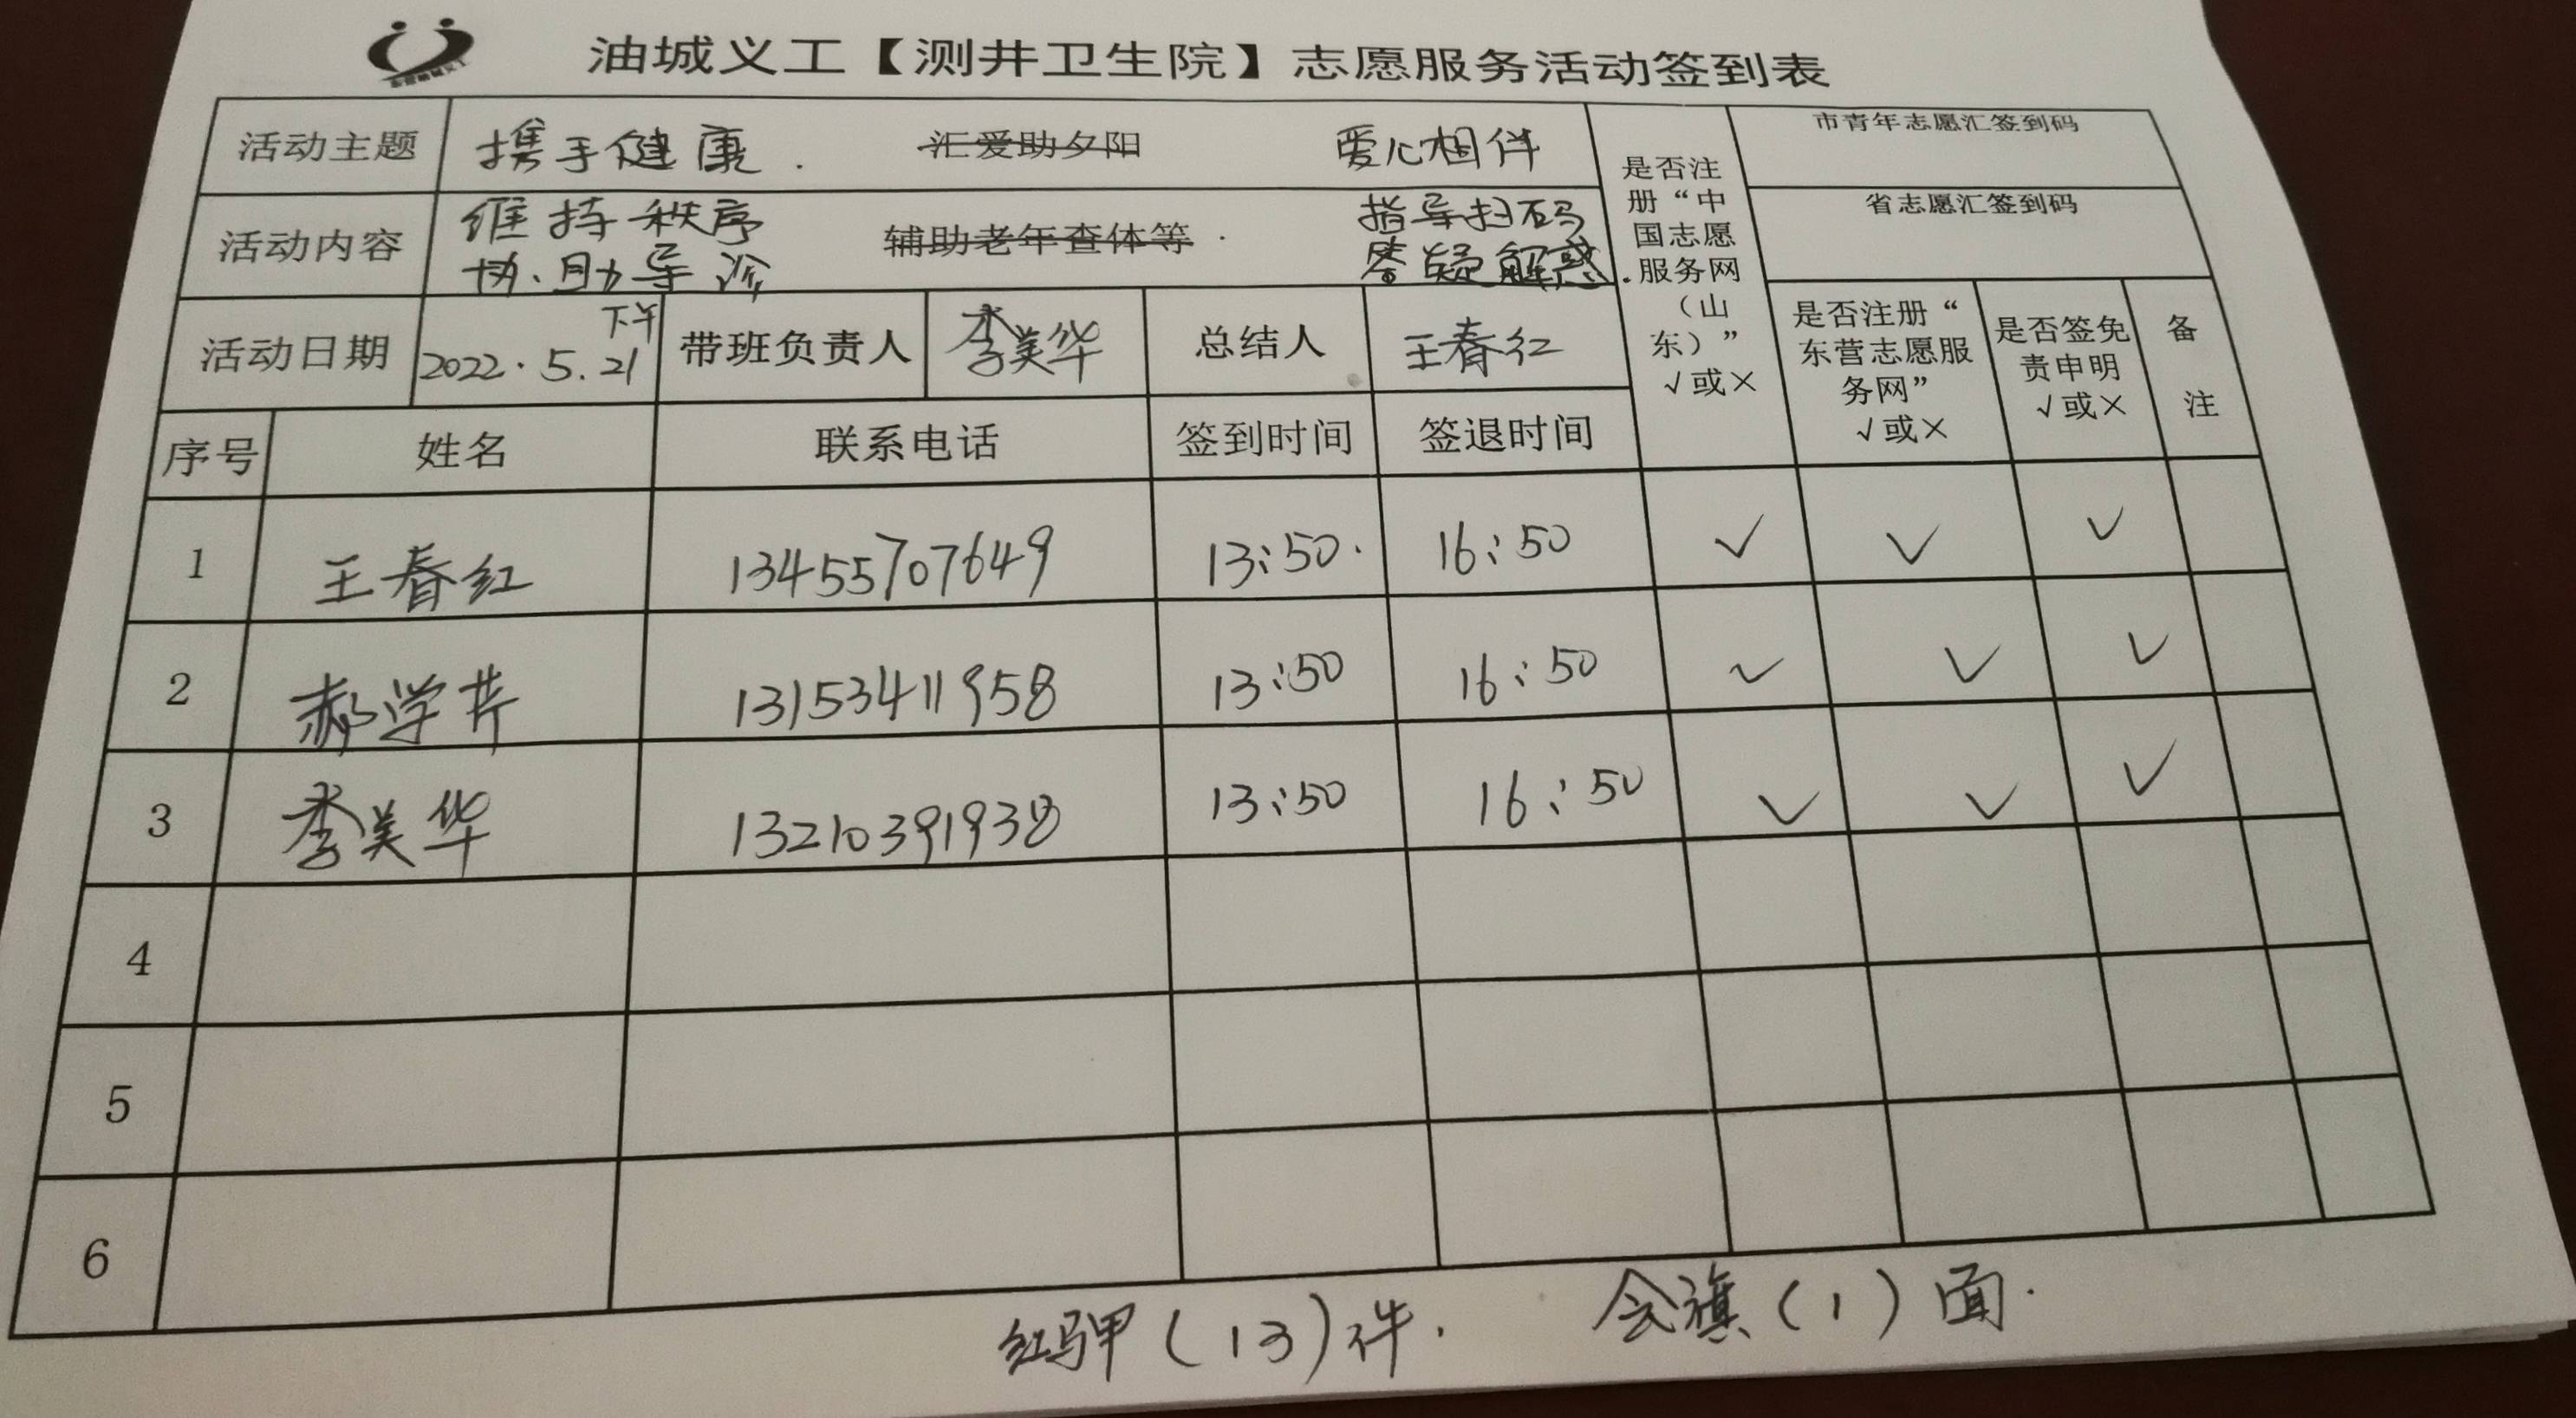 油城义工【测井卫生院】志愿服务活动签到表
活动主题 携手健康. 汇爱助夕阳 爱心相伴
活动内容 维持秩序 辅助老年查体等 指导扫码
协助导诊 答疑解惑.
活动日期 2022.5.21 下午 带班负责人 李美华 总结人 王春红
是否注
册“中
国志愿
服务网
（山
东）”
√或×
市青年志愿汇签到码
省志愿汇签到码
是否注册“
东营志愿服
务网”
√或×
是否签免
责申明
√或×
备
注
序号 姓名 联系电话 签到时间 签退时间
1 王春红 13455707649 13:50. 16:50 ✓ ✓ ✓
2 郝学芹 13153411958 13:50 16:50 ✓ ✓ ✓
3 李美华 13210391938 13:50 16:50 ✓ ✓ ✓
4
5
6
红马甲(13)件. 会旗(1)面.